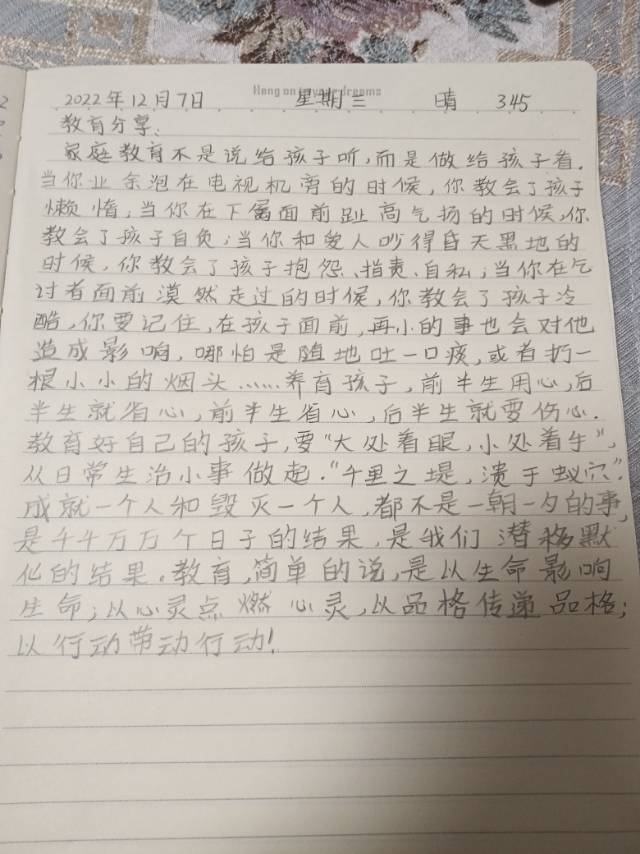 Hang on to your dreams
2022年12月7日 星期三 晴 345
教育分享:
家庭教育不是说给孩子听,而是做给孩子看.
当你业余泡在电视机旁的时候,你教会了孩子
懒惰,当你在下属面前趾高气扬的时候,你
教会了孩子自负;当你和爱人吵得昏天黑地的
时候,你教会了孩子抱怨、指责、自私;当你在乞
讨者面前漠然走过的时候,你教会了孩子冷
酷,你要记住,在孩子面前,再小的事也会对他
造成影响,哪怕是随地吐一口痰,或者扔一
根小小的烟头……养育孩子,前半生用心,后
半生就省心,前半生省心,后半生就要伤心.
教育好自己的孩子,要“大处着眼,小处着手”,
从日常生活小事做起.“千里之堤,溃于蚁穴”.
成就一个人和毁灭一个人,都不是一朝一夕的事,
是千千万万个日子的结果,是我们潜移默
化的结果.教育,简单的说,是以生命影响
生命;以心灵点燃心灵,以品格传递品格;
以行动带动行动!